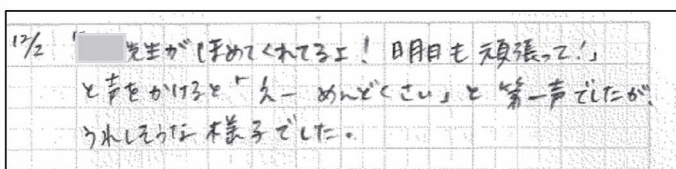 12/2 「　　先生がほめてくれてるよ！明日も頑張って！」
と声をかけると「えー めんどくさい」と第一声でしたが、
うれしそうな様子でした。